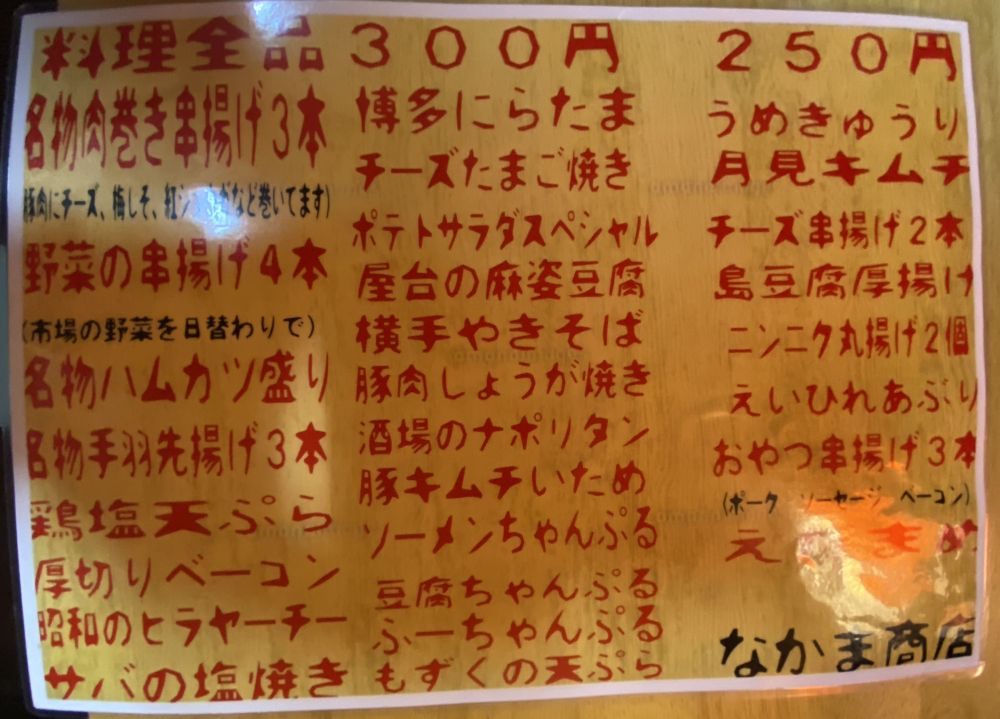 料理全品 300円
名物肉巻き串揚げ3本
豚肉にチーズ、梅しそ、紅ショウガなど巻いてます)
野菜の串揚げ4本
(市場の野菜を日替わりで)
名物ハムカツ盛り
名物手羽先揚げ3本
鶏塩天ぷら
厚切りベーコン
昭和のヒラヤーチー
サバの塩焼き
博多にらたま
チーズたまご焼き
ポテトサラダスペシャル
屋台の麻婆豆腐
横手やきそば
豚肉しょうが焼き
酒場のナポリタン
豚キムチいため
ソーメンちゃんぷる
豆腐ちゃんぷる
ふーちゃんぷる
もずくの天ぷら
250円
うめきゅうり
月見キムチ
チーズ串揚げ2本
島豆腐厚揚げ
ニンニク丸揚げ2個
えいひれあぶり
おやつ串揚げ3本
(ポーク ソーセージ ベーコン)
なかま商店